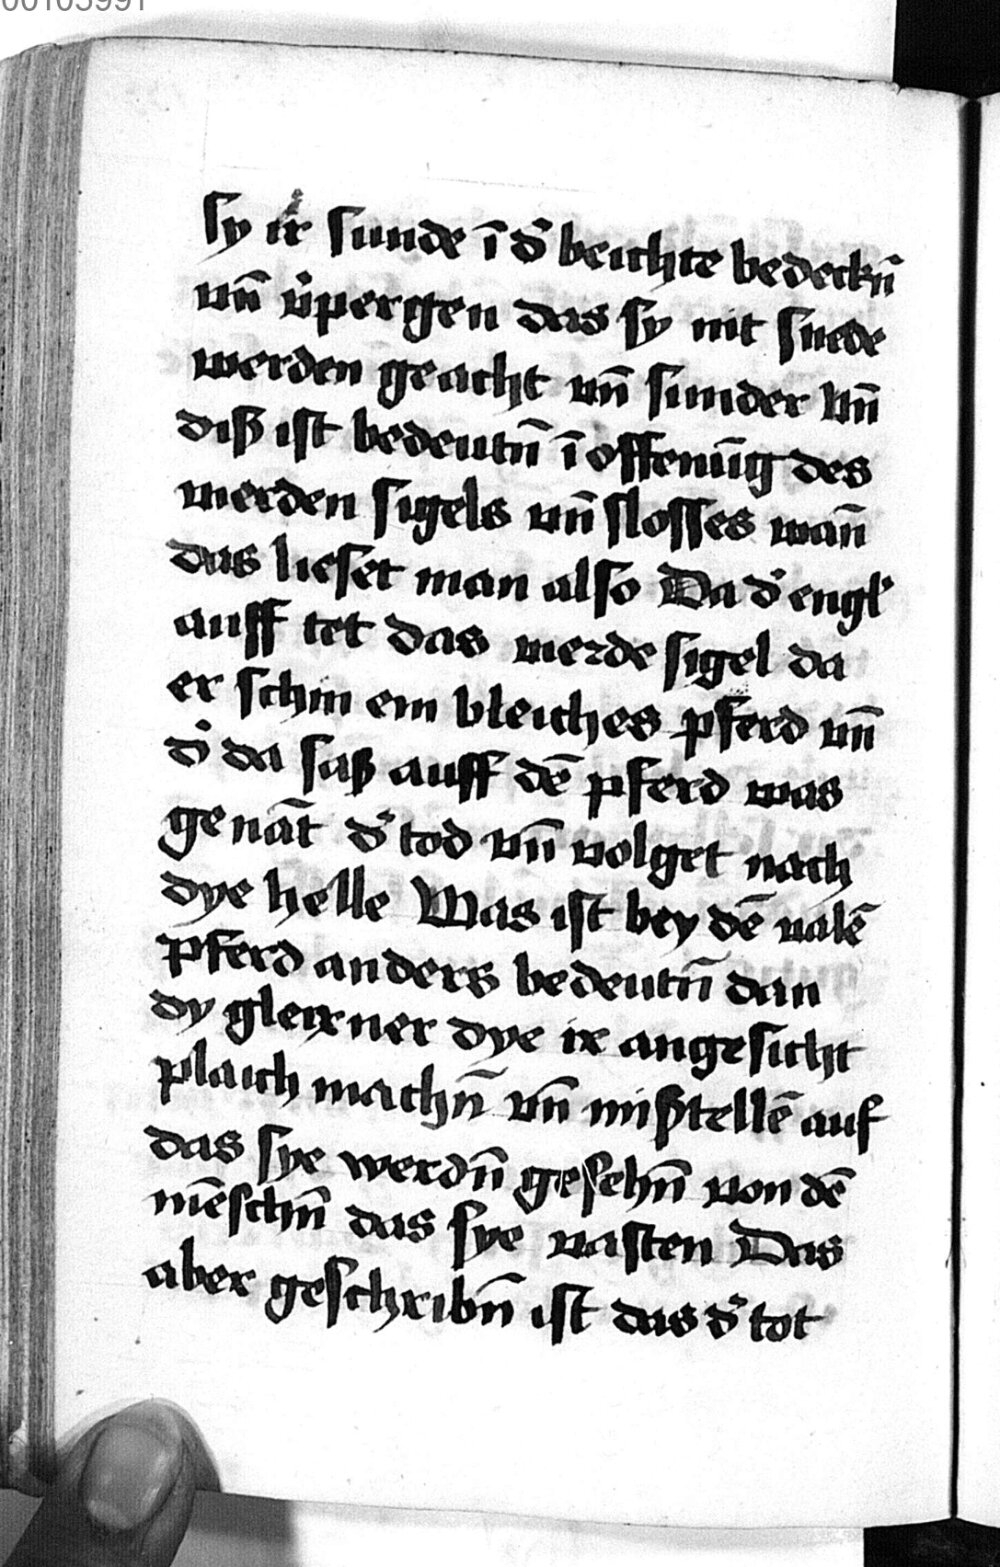 00103991
sy ir sunde ī d̕ beichte bedeckn̄
vn̄ v̕pergen das sy nit snede
werden geacht vn̄ sunder vn̄
diß ist bedeutn̄ ī offenūg des
vierden sigels vn̄ slosses wan̄
das lieset man also Da d̕ engl̕
auff tet das vierde sigel da
er schin ein bleiches pferd vn̄
d̕ da saß auff dē pferd was
genāt d̕ tod vn̄ volget nach
dye helle Was ist bey dē valē
pferd anders bedeutn̄ dan
dy gleixner dye ir angesicht
plaich machn̄ vn̄ mißtellē auf
das sye werdn̄ gesehn̄ von dē
mēschn̄ das sye vasten Das
aber geschribn̄ ist das d̕ tot